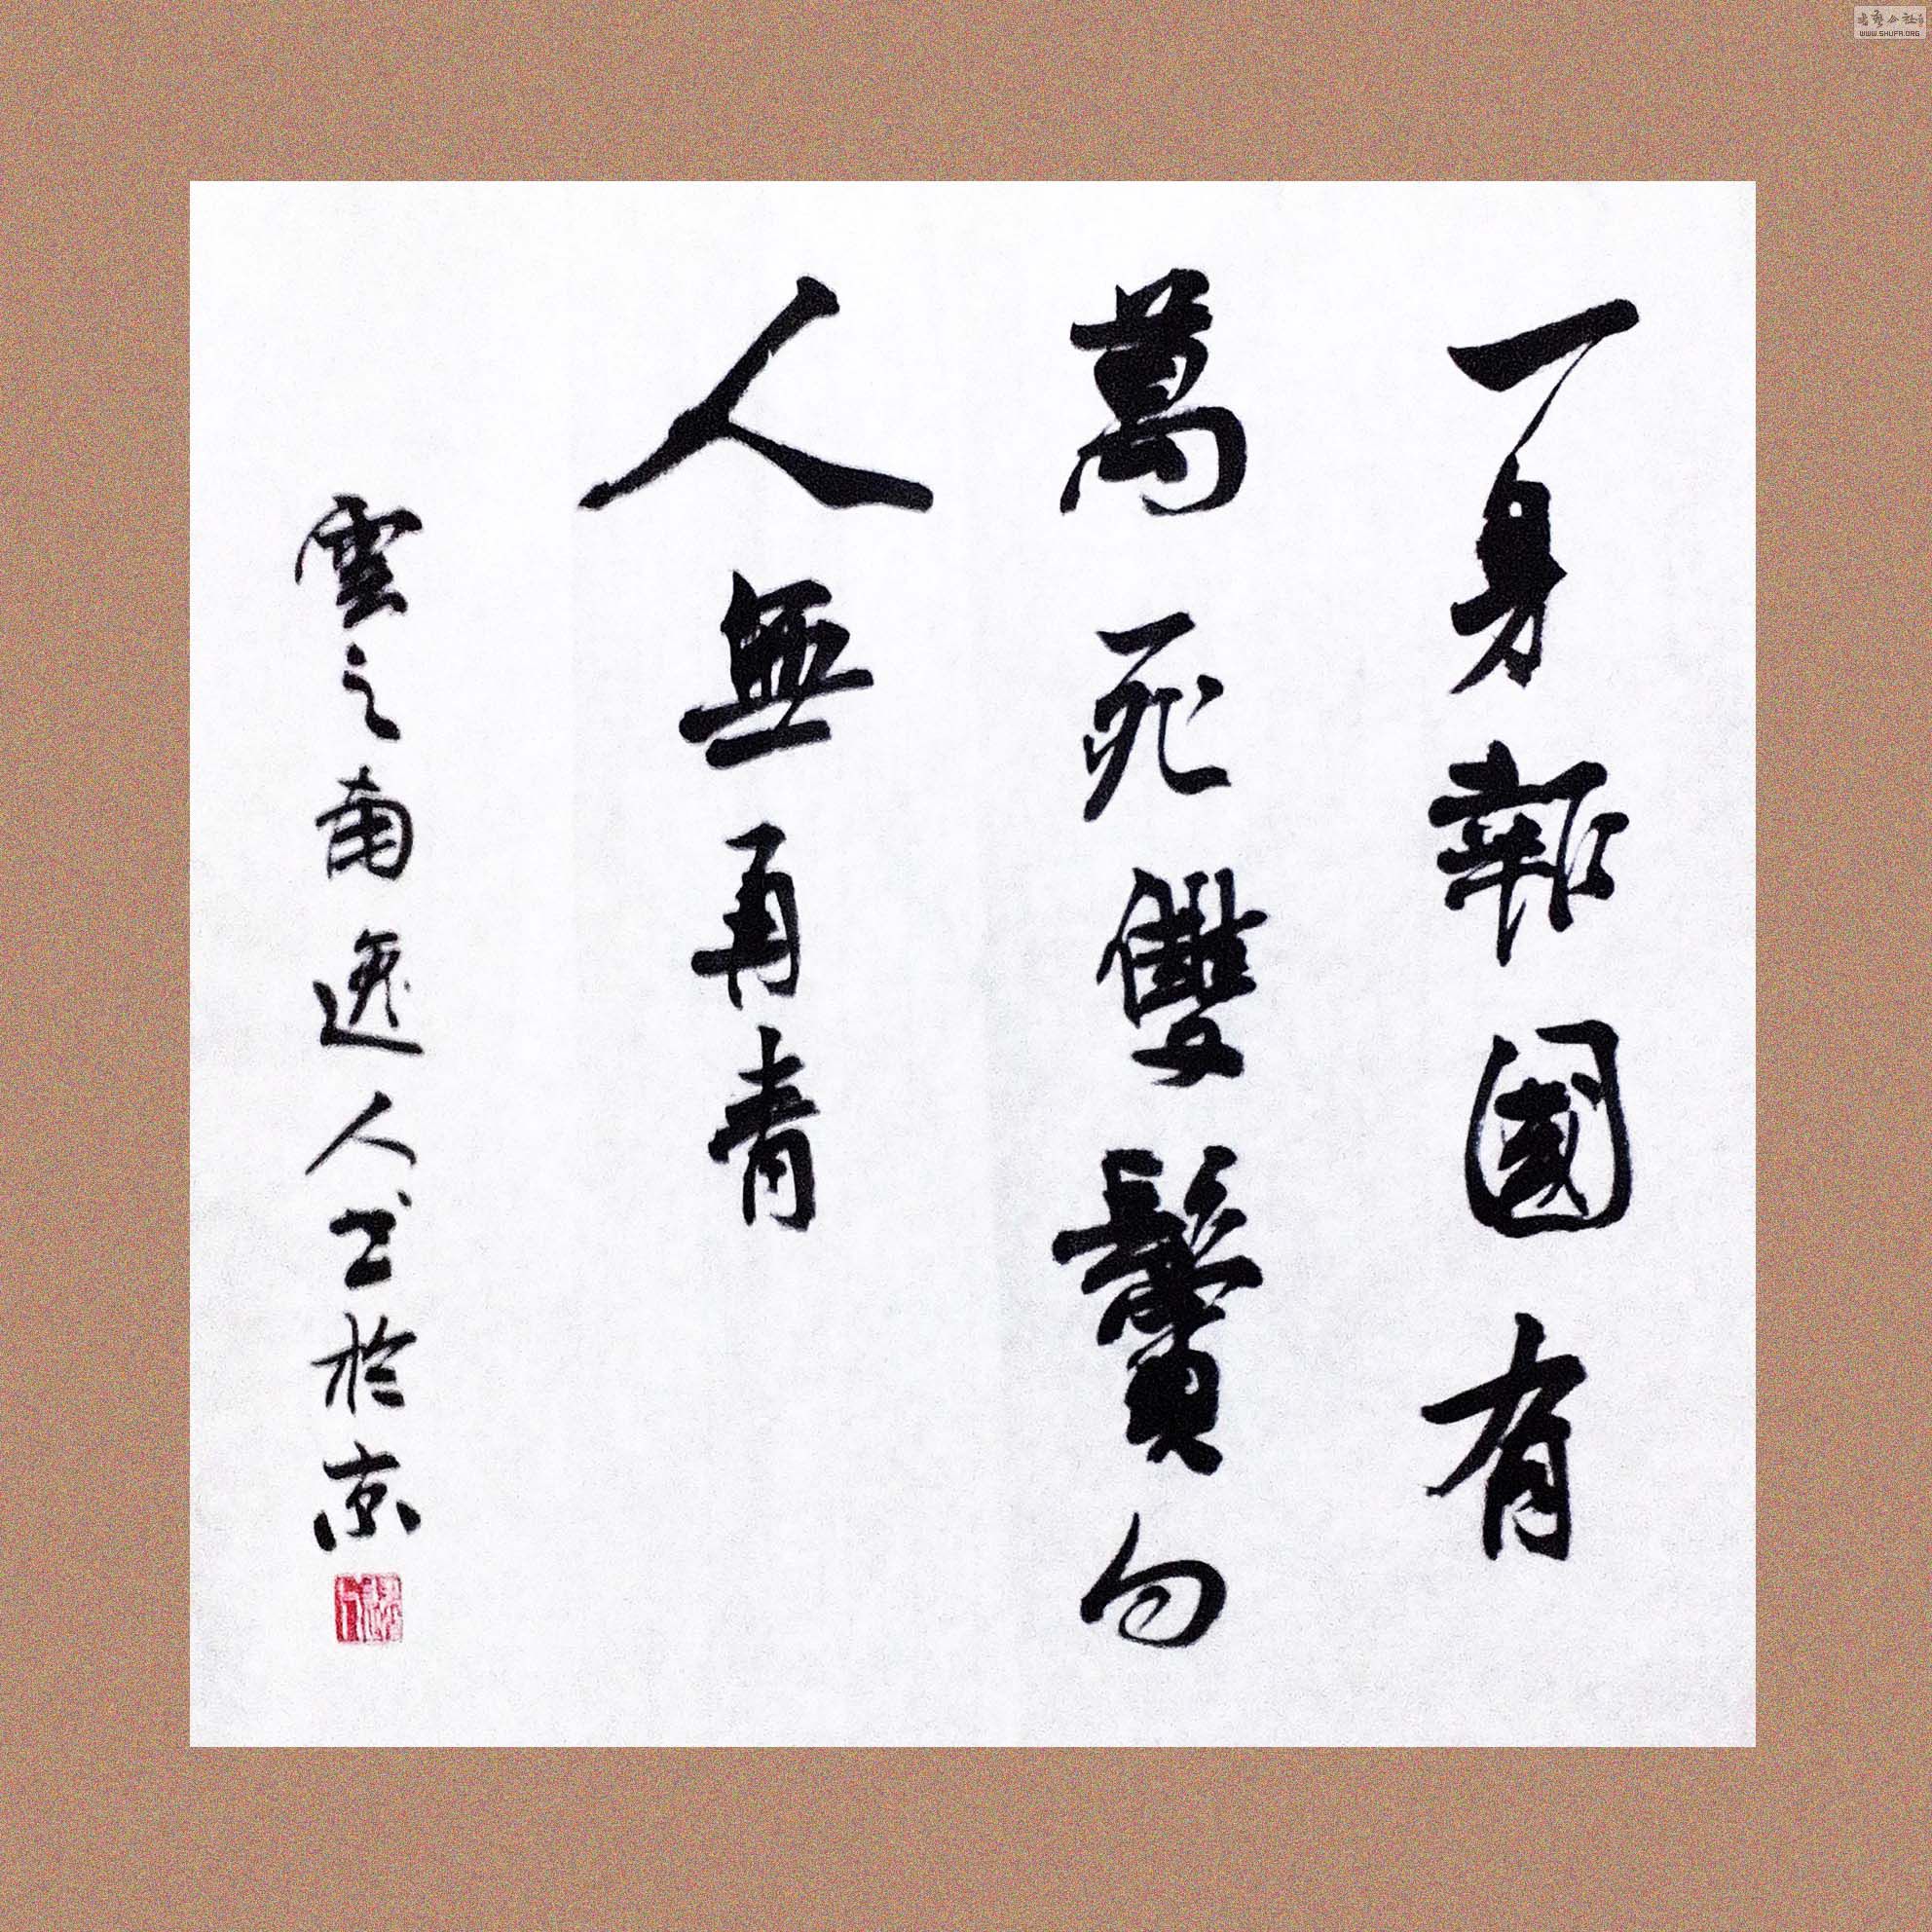 一身報國有
萬死雙鬢向
人無再青
雲之南逸人书於京
WWW.SHUFA.ORG